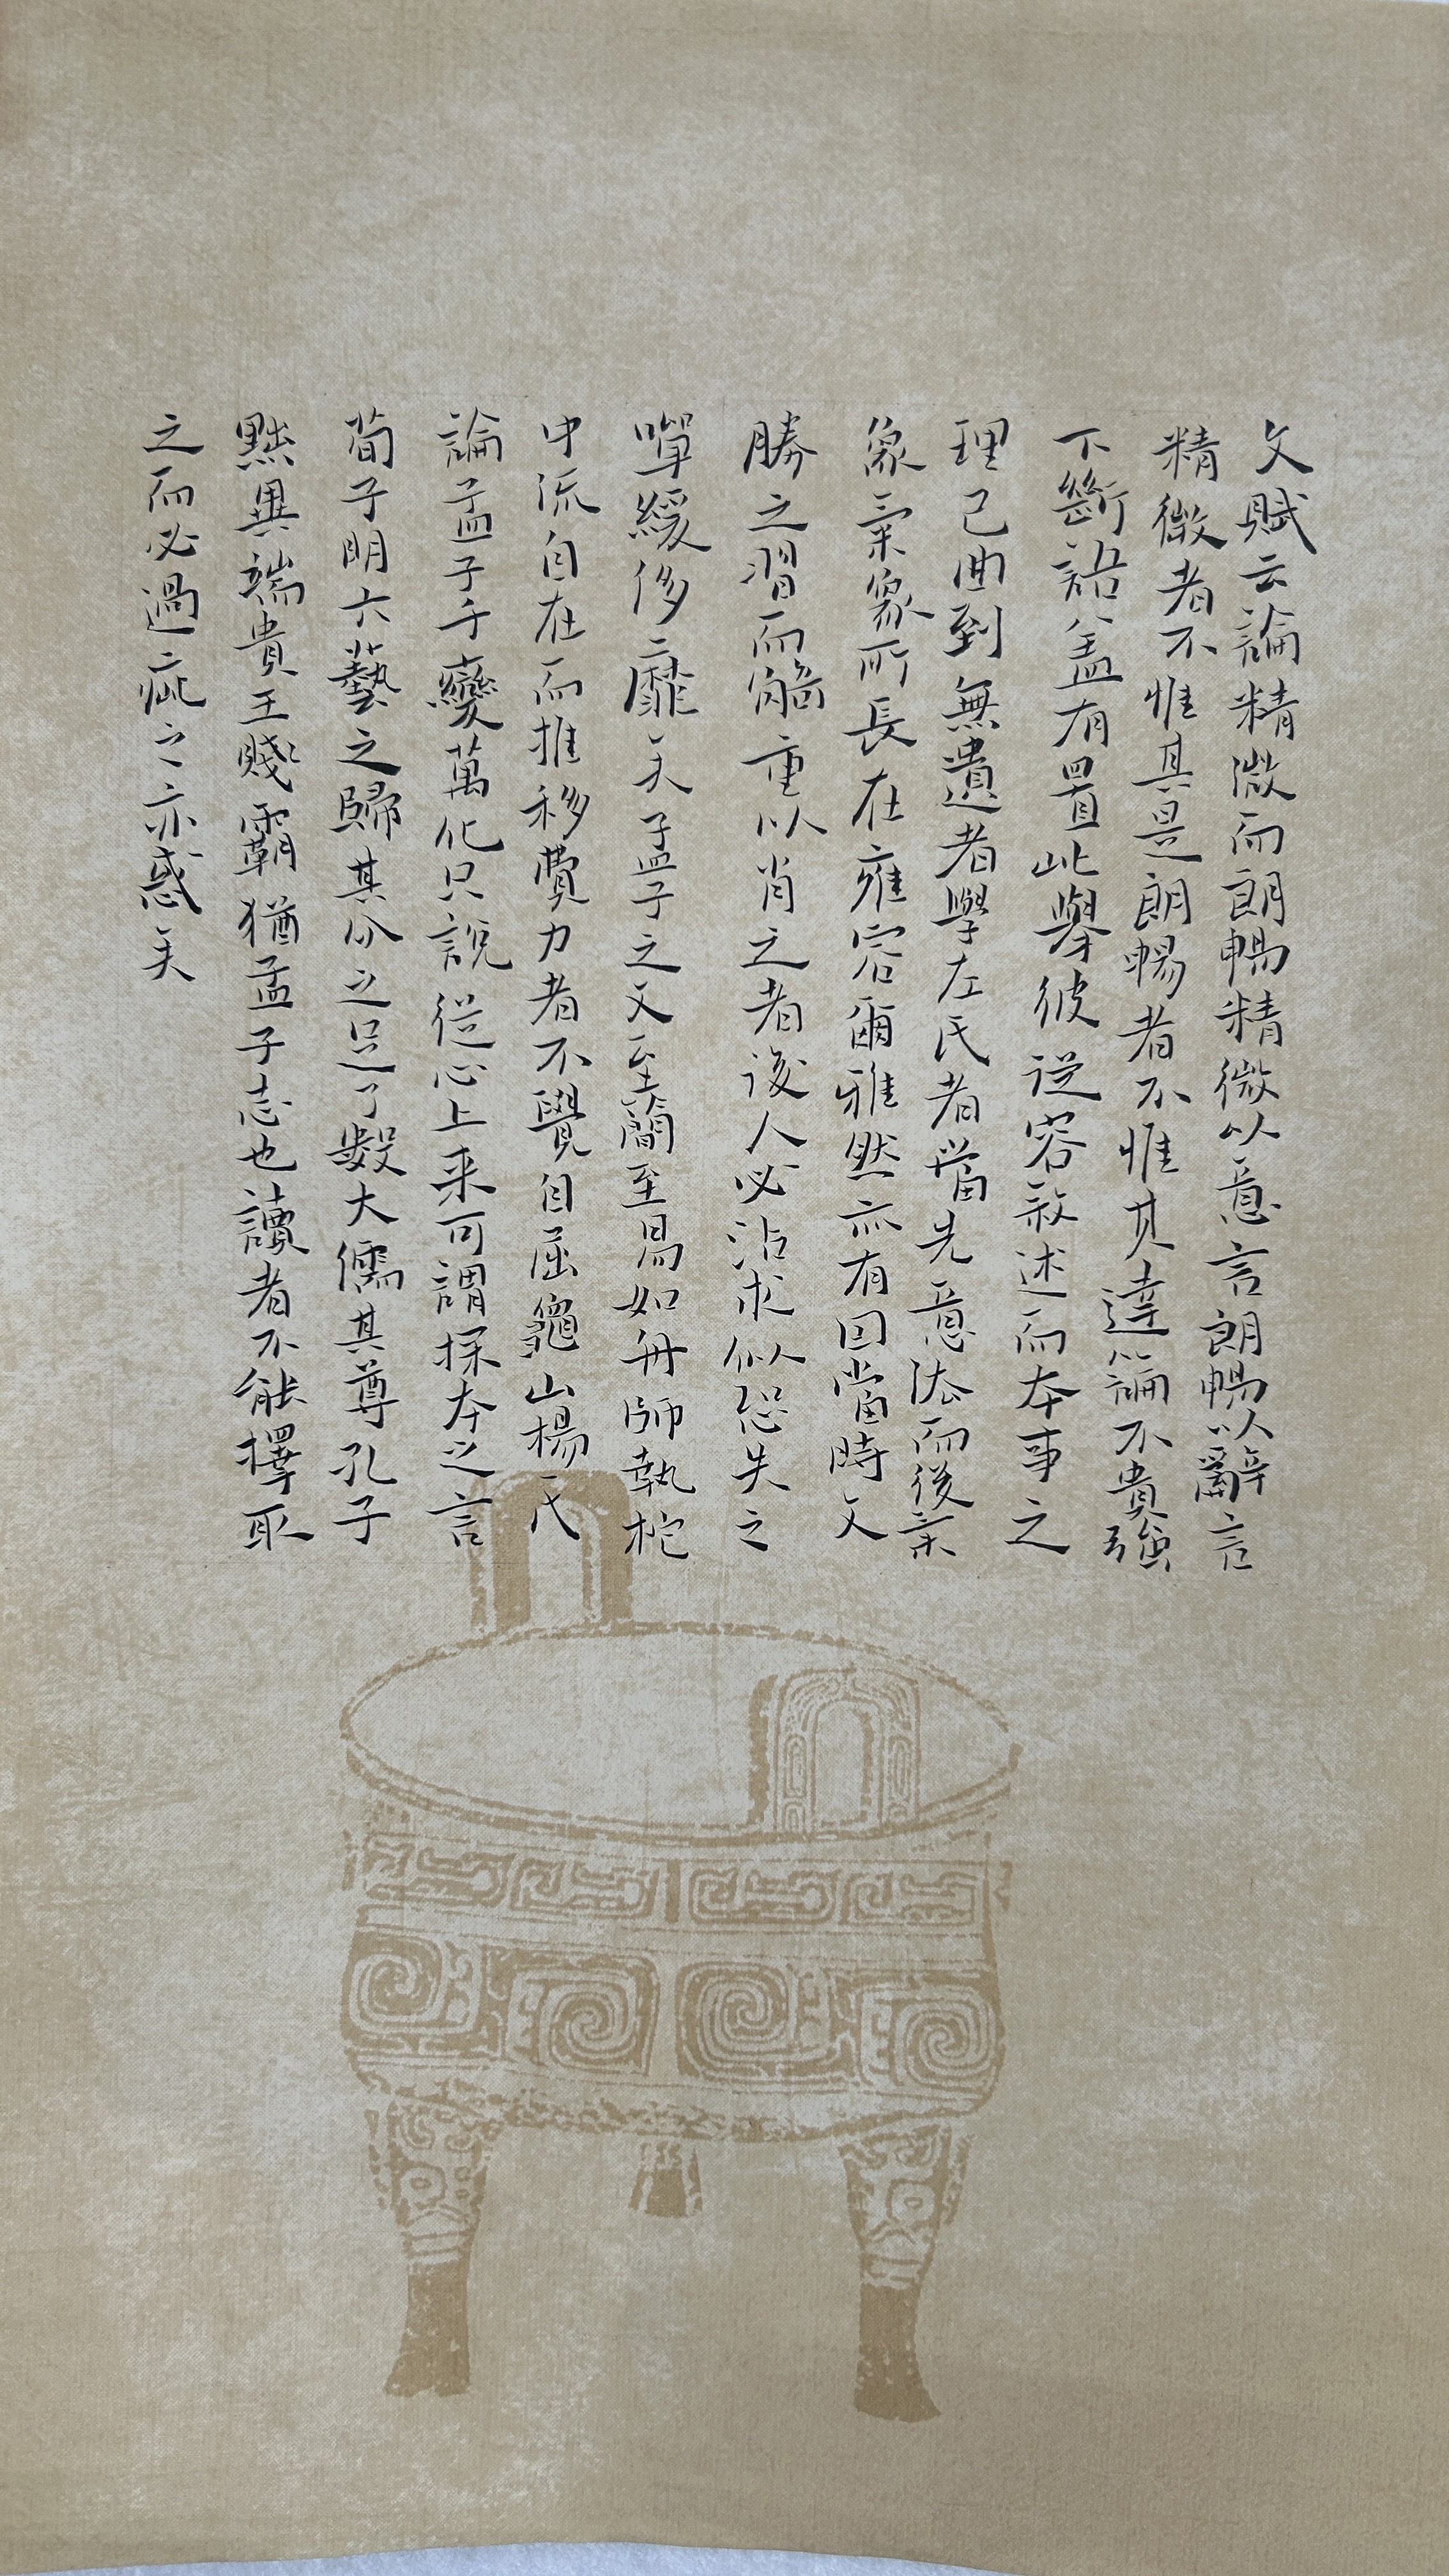 文賦云論精微而朗暢精微以意言朗暢以辭言
精微者不惟其是朗暢者不惟其達論不貴強
下斷語蓋有置此舉彼從容敘述而本事之
理已曲到無遺者學左氏者當先意法而後氣
象氣象所長在雍容爾雅然亦有因當時文
勝之習而觭重以肖之者後人必沾求似恐失之
嘽緩侈靡矣孟子之文至簡至易如舟師執柁
中流自在而推移費力者不覺自屈龜山楊氏
論孟子千變萬化只說從心上來可謂探本之言
荀子明六藝之歸其分之足了數大儒其尊孔子
黜異端貴王賤霸猶孟子志也讀者不能擇取
之而必過疵之亦惑矣